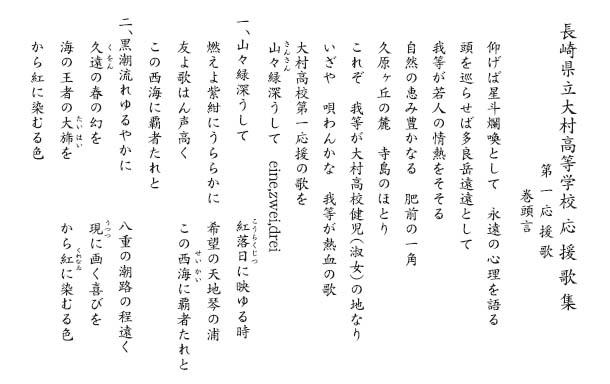 長崎県立大村高等学校 応援歌集
第一応援歌
巻頭言
仰げば星斗爛喚として　永遠の心理を語る
頭を巡らせば多良岳遠遠として
我等が若人の情熱をそそる
自然の恵み豊かなる　肥前の一角
久原ヶ丘の麓　寺島のほとり
これぞ　我等が大村高校健児（淑女）の地なり
いざや　唄わんかな　我等が熱血の歌
大村高校第一応援の歌を
山々緑深うして　eine,zwei,drei
さんさん
一、山々緑深うして　紅落日に映ゆる時
こうらくじつ
燃えよ紫紺にうららかに　希望の天地琴の浦
友よ歌はん声高く　この西海に覇者たれと
せいかい
この西海に覇者たれと
二、黒潮流れゆるやかに　八重の潮路の程遠く
久遠の春の幻を　現に画く喜びを
くをん
うつつ
海の王者の大旆を　から紅に染むる色
たいはい
くれなゐ
から紅に染むる色